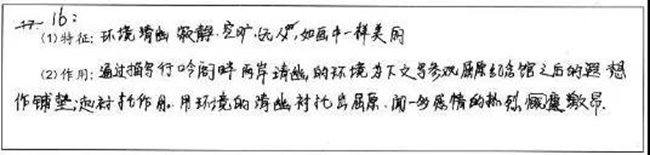 16:
(1)特征: 环境清幽 寂静.空旷.无人,如画中一样美丽
(2)作用: 通过描写行吟阁畔两岸清幽,的环境为下文写参观屈原纪念馆之后的遐想
作铺垫,起衬托作用.用环境的清幽衬托出屈原.闻一多感情的热烈 慷慨激昂.